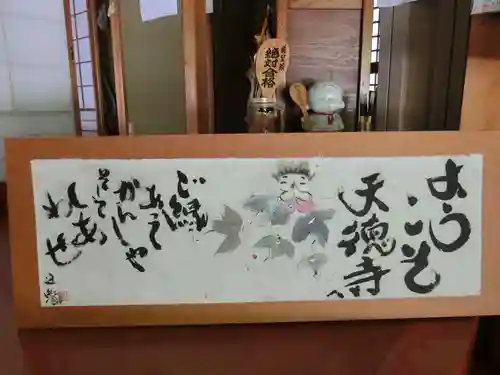 絶対合格
ようこそ
天徳寺へ
ご縁
あって
かんしゃ
そして
しあわせ